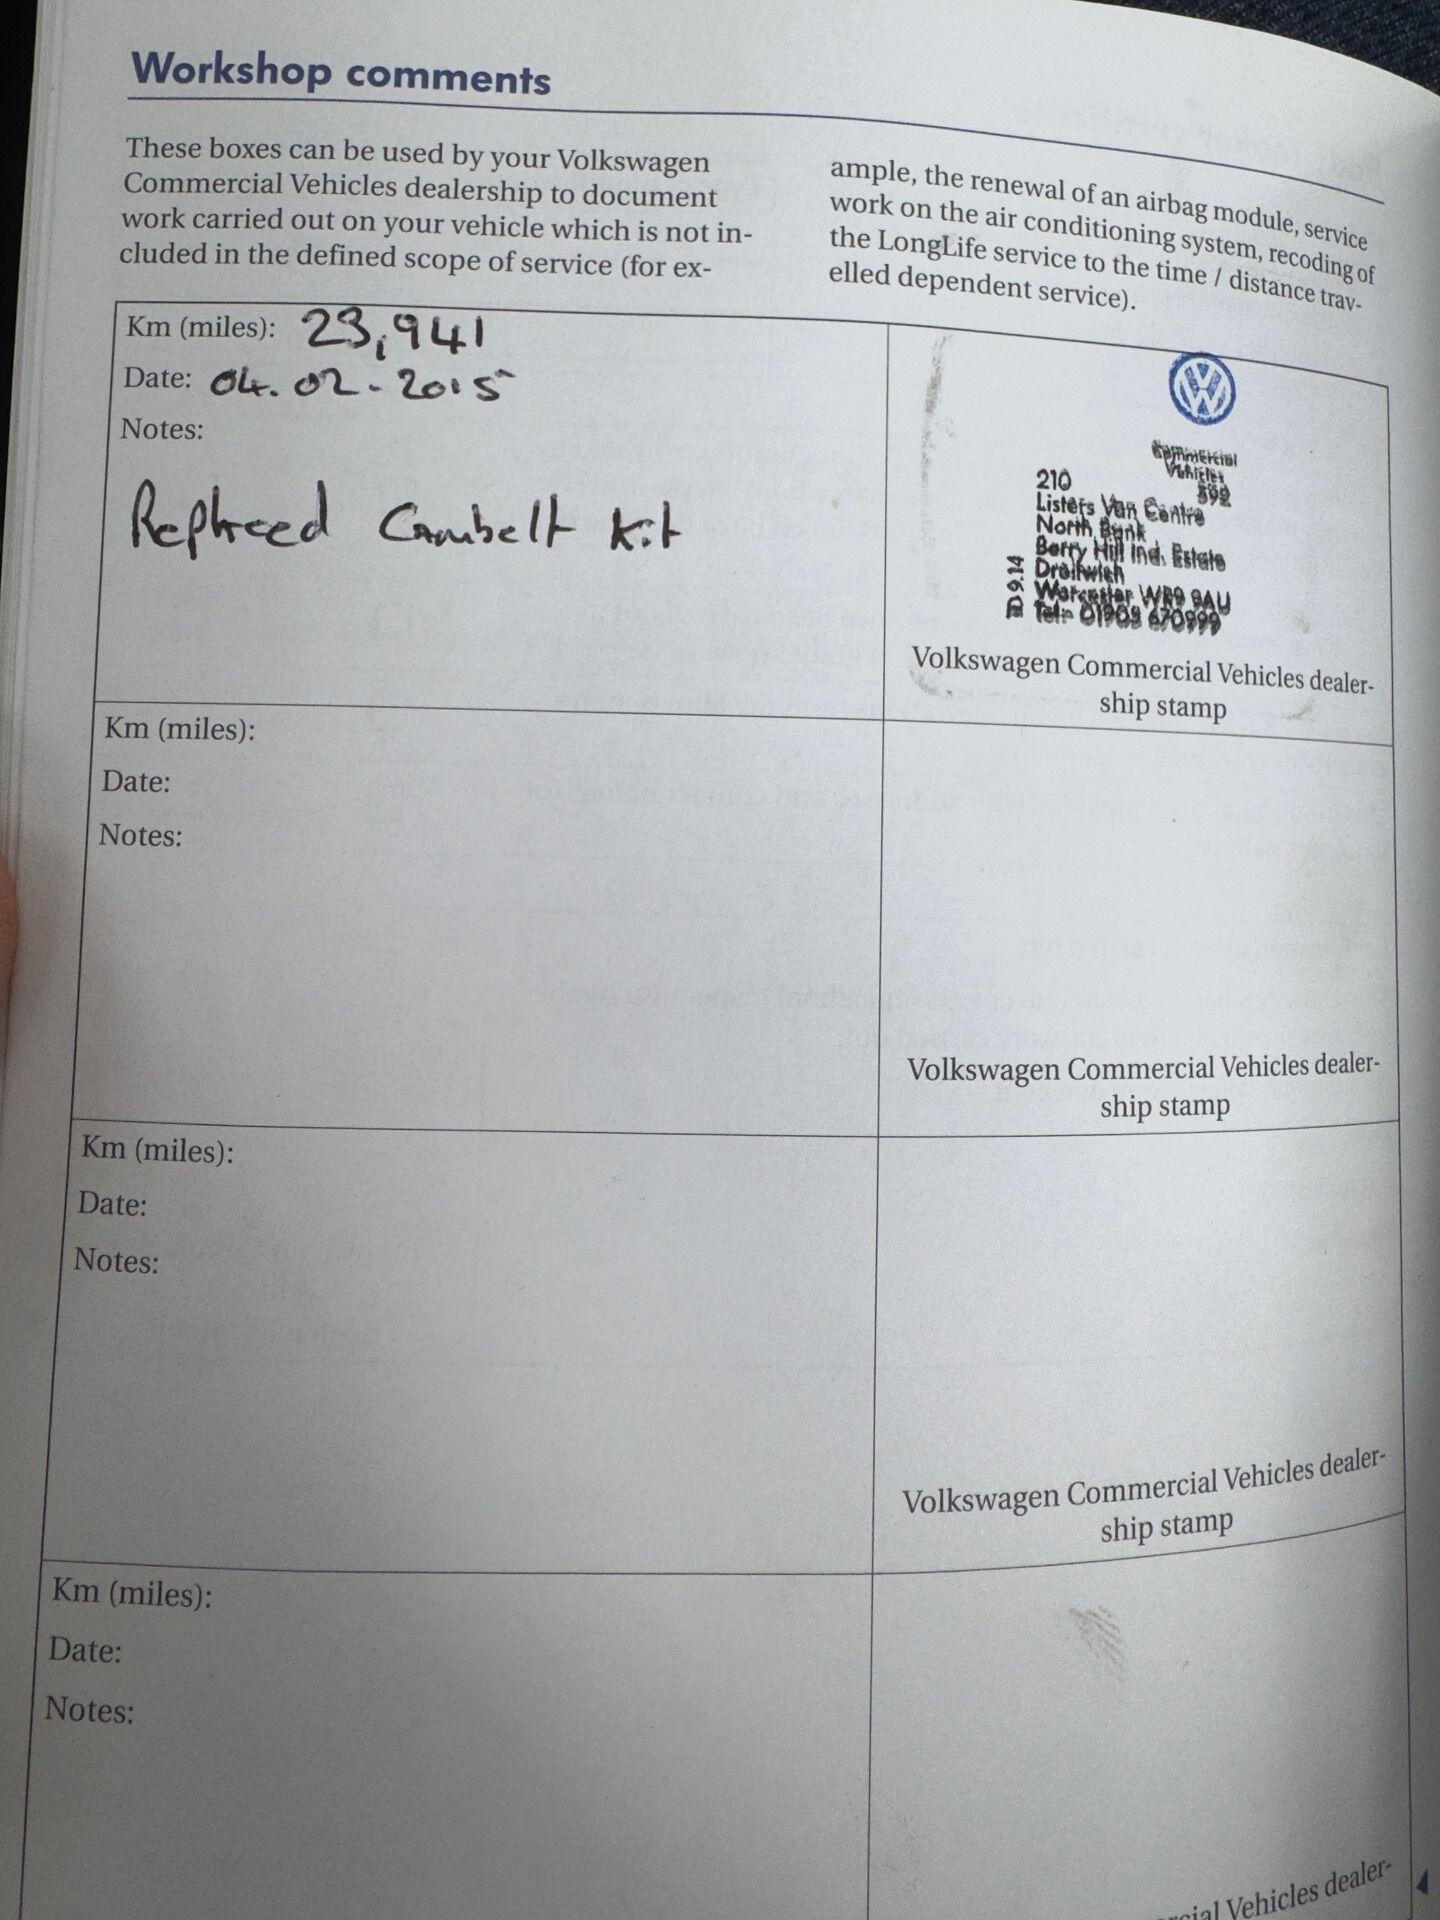 Workshop comments
These boxes can be used by your Volkswagen
Commercial Vehicles dealership to document
work carried out on your vehicle which is not in-
cluded in the defined scope of service (for ex-
ample, the renewal of an airbag module, service
work on the air conditioning system, recoding of
the LongLife service to the time / distance trav-
elled dependent service).
Km (miles): 23,941
Date: 04.02-2015
Notes:
Replaced Cambelt kit
Commercial
Vehicles
392
210
Listers Van Centre
North Bank
Berry Hill Ind. Estate
Droitwich
Worcester WR9 9AU
Tel:
9.14
Volkswagen Commercial Vehicles dealer-
ship stamp
Km (miles):
Date:
Notes:
Volkswagen Commercial Vehicles dealer-
ship stamp
Km (miles):
Date:
Notes:
Volkswagen Commercial Vehicles dealer-
ship stamp
Km (miles):
Date:
Notes:
Vehicles dealer-